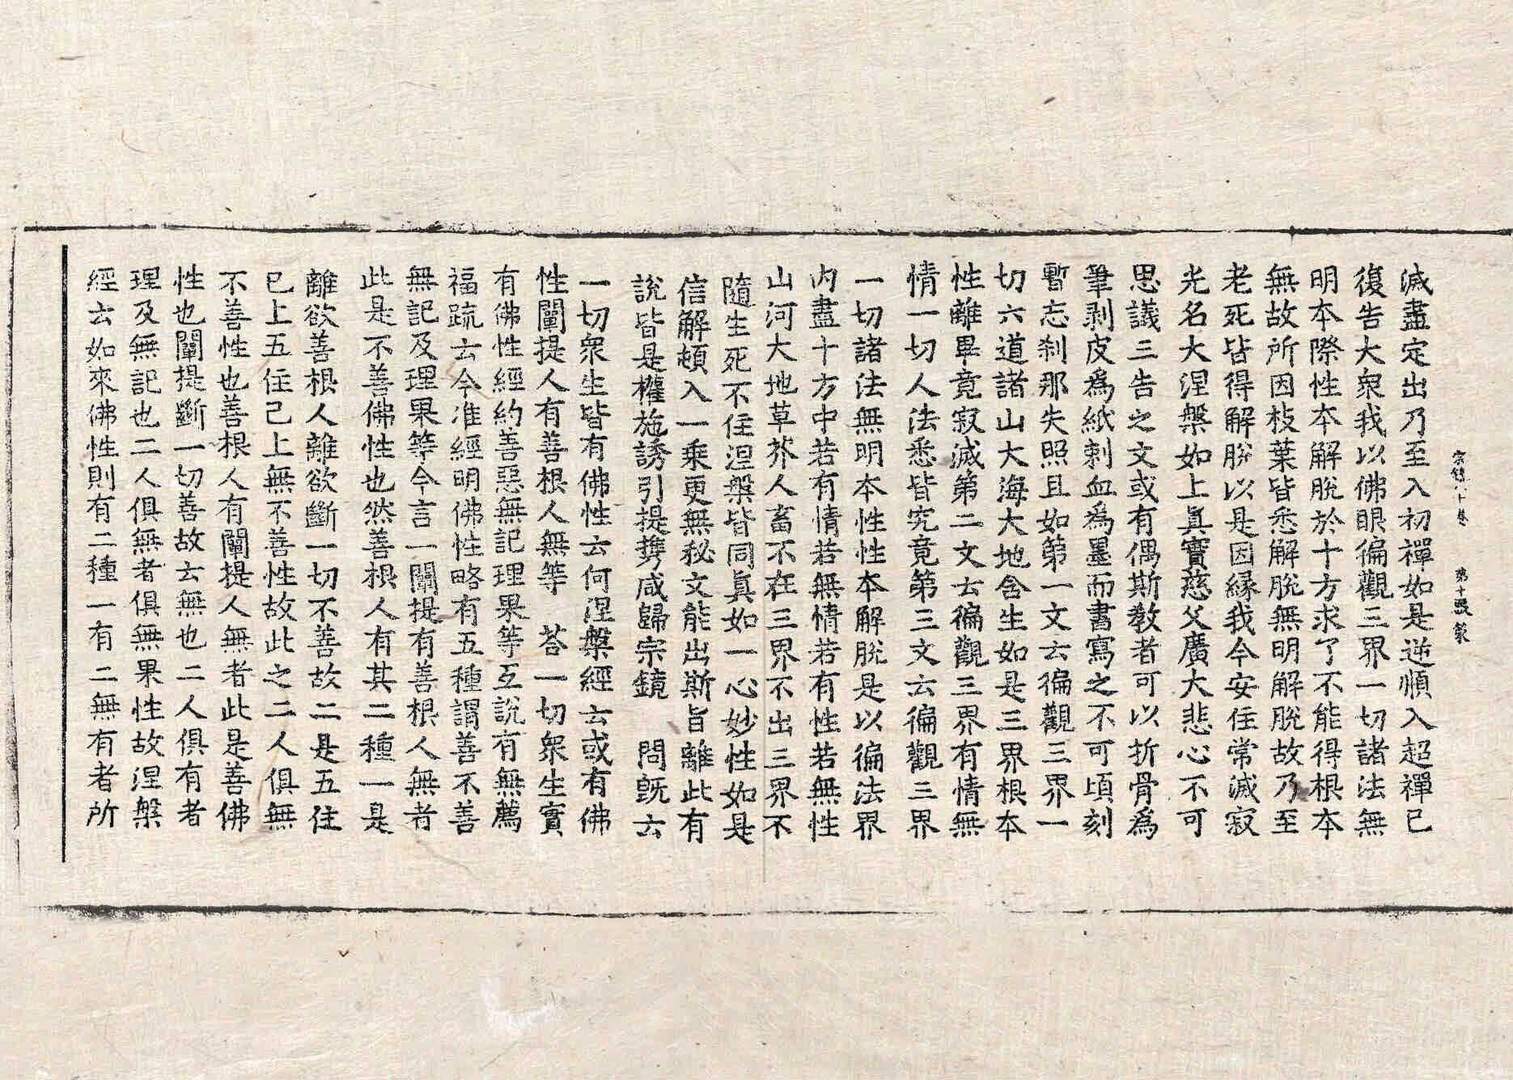 宗鏡八十卷　第十四張　蒙
滅盡定出乃至入初禪如是逆順入超禪已
復告大衆我以佛眼徧觀三界一切諸法無
明本際性本解脫於十方求了不能得根本
無故所因枝葉皆悉解脫無明解脫故乃至
老死皆得解脫以是因緣我今安住常滅寂
光名大涅槃如上眞實慈父廣大悲心不可
思議三告之文或有偶斯教者可以折骨爲
筆剥皮爲紙刺血爲墨而書寫之不可頃刻
暫忘刹那失照且如第一文云徧觀三界一
切六道諸山大海大地含生如是三界根本
性離畢竟寂滅第二文云徧觀三界有情無
情一切人法悉皆究竟第三文云徧觀三界
一切諸法無明本性性本解脫是以徧法界
内盡十方中若有情若無情若有性若無性
山河大地草芥人畜不在三界不出三界不
隨生死不住涅槃皆同眞如一心妙性如是
信解頓入一乘更無秘文能出斯旨離此有
說皆是權施誘引提携咸歸宗鏡　問旣云
一切衆生皆有佛性云何涅槃經云或有佛
性闡提人有善根人無等　荅一切衆生實
有佛性經約善惡無記理果等互說有無薦
福䟽云今准經明佛性略有五種謂善不善
無記及理果等今言一闡提有善根人無者
此是不善佛性也然善根人有其二種一是
離欲善根人離欲斷一切不善故二是五住
已上五住已上無不善性故此之二人俱無
不善性也善根人有闡提人無者此是善佛
性也闡提斷一切善故云無也二人俱有者
理及無記也二人俱無者俱無果性故涅槃
經云如來佛性則有二種一有二無有者所